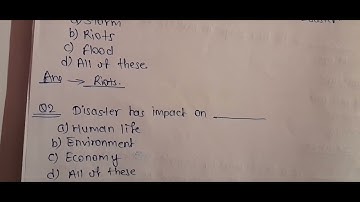 a) Storm
b) Riots
c) flood
d) All of these.
Ans → Riots.
Q2 Disaster has impact on ______
a) Human life
b) Environment
c) Economy
d) All of these